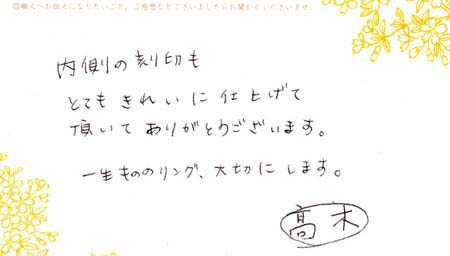 ◎職人へお伝えになりたいこと、ご感想などございましたらお聞かせくださいませ。
内側の刻印も
とてもきれいに仕上げて
頂いてありがとうございます。
一生もののリング、大切にします。
高木